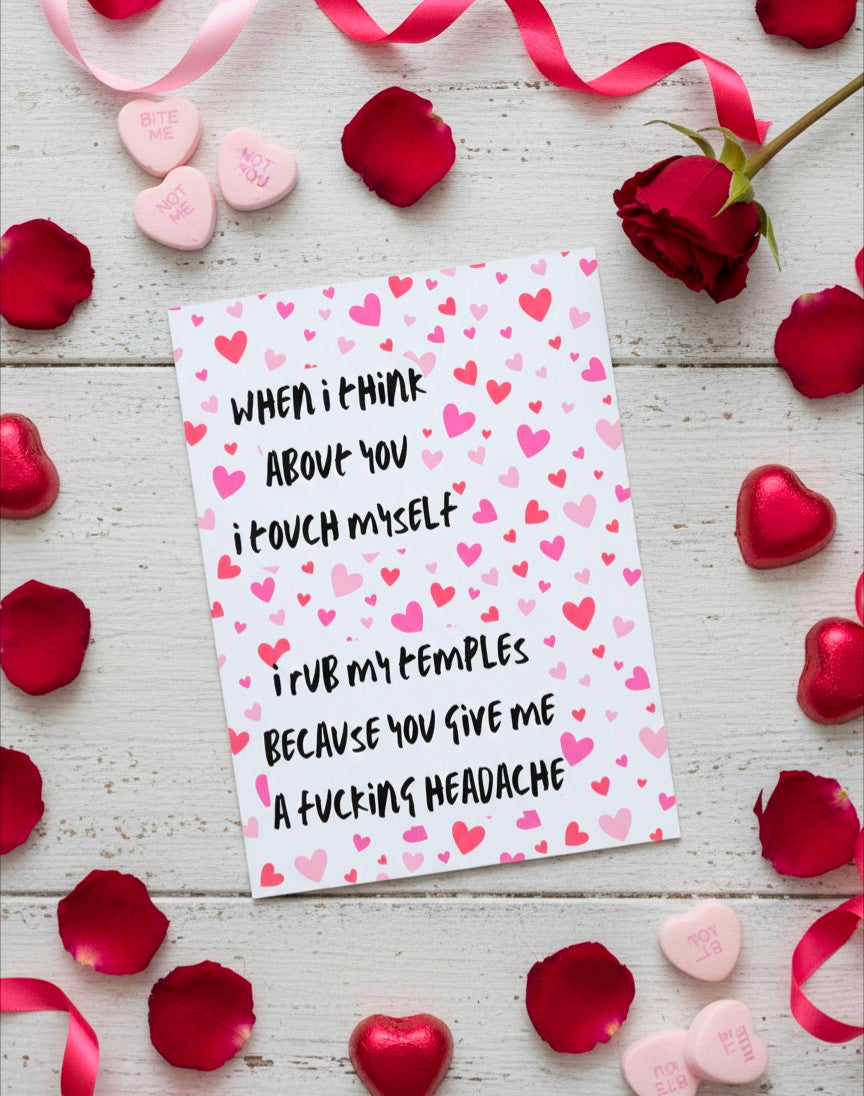 BITE
ME
NOT
YOU
NOT
ME
WHEN i tHiNK
ABOUt YOU
i tOUCH MYSELf
i rUB MY tEMPLES
BECAUSE YOU GiVE ME
A fUCKiNG HEADACHE